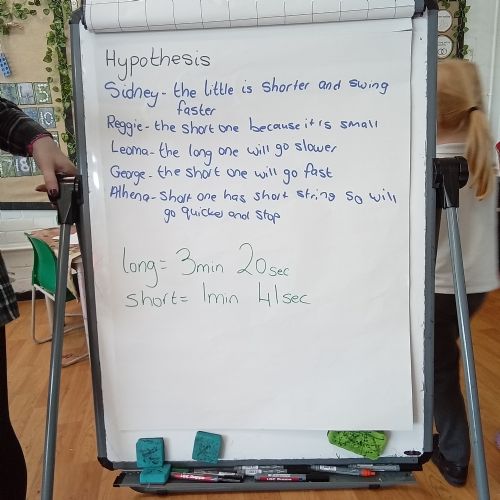 Hypothesis
Sidney - the little is shorter and swing
faster
Reggie - the short one because it is small
Leoma - the long one will go slower
George - the short one will go fast
Athena - short one has short string so will
go quicker and stop
long = 3min 20sec
short = 1min 41sec